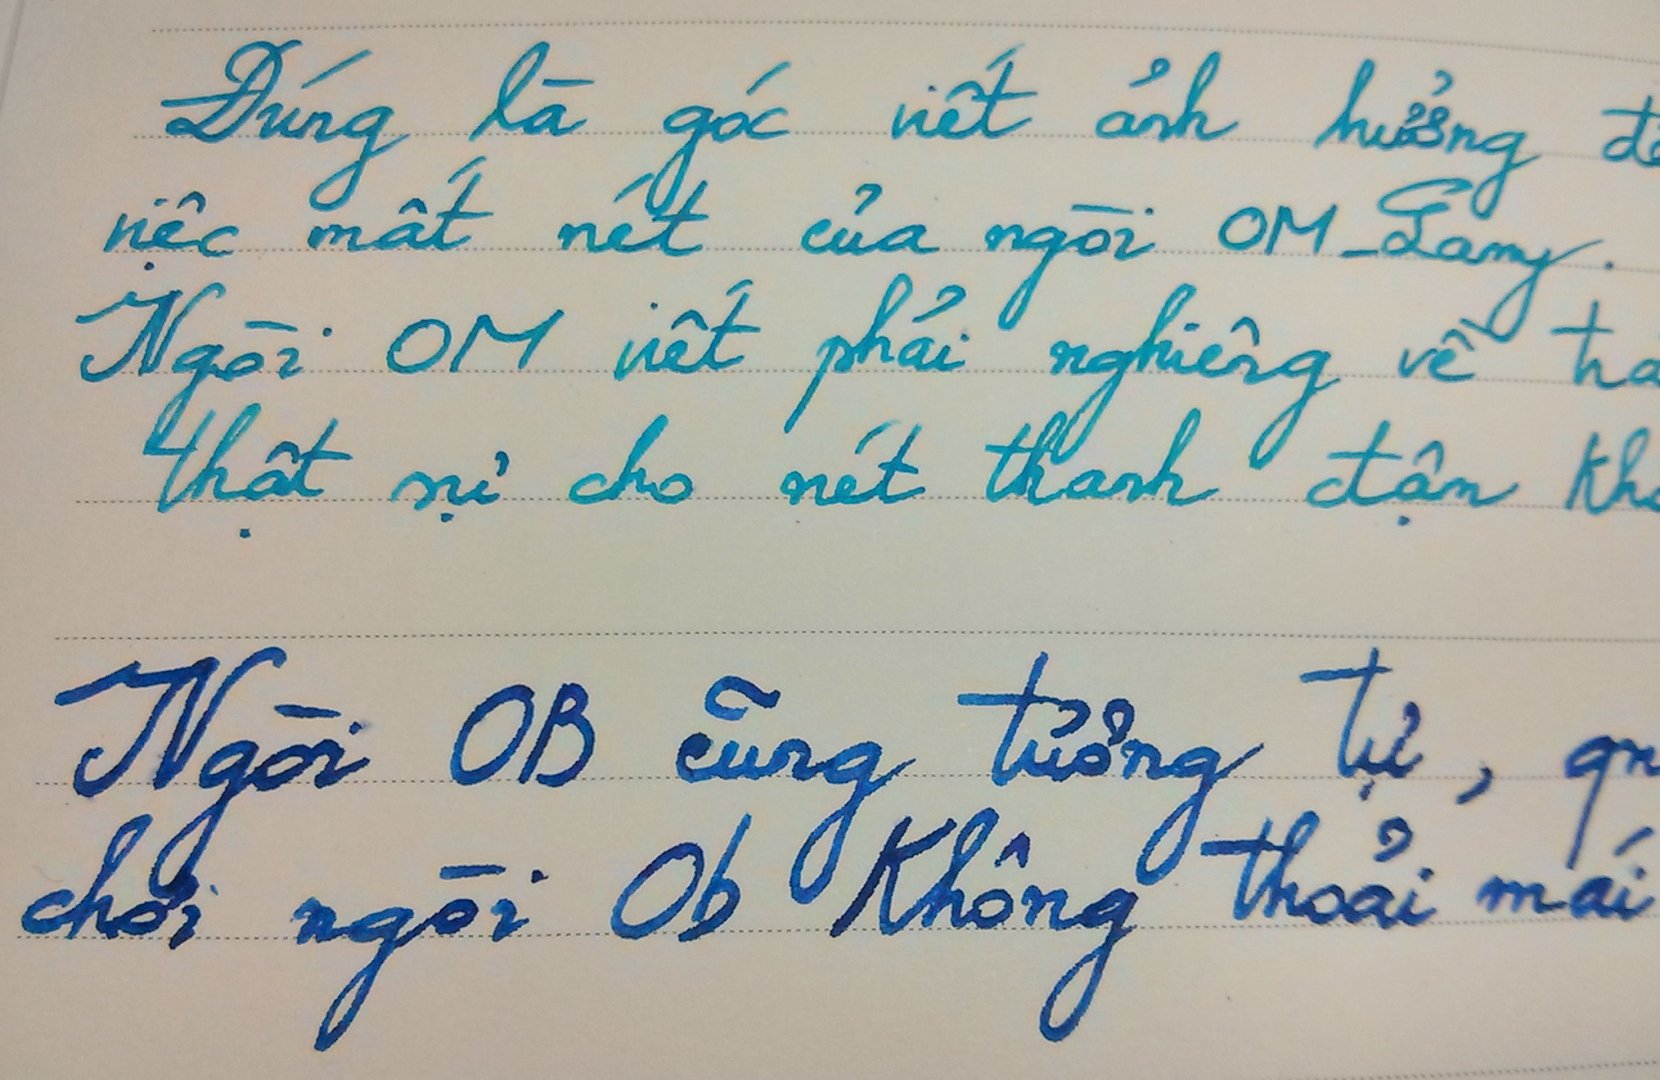 Đúng là góc viết ảnh hưởng
việc mất nét của ngòi OM-Lamy.
Ngòi OM viết phải nghiêng về
thật sự cho nét thanh đậm
Ngòi OB cũng tưởng tự,
chơi ngòi Ob Không thoải mái